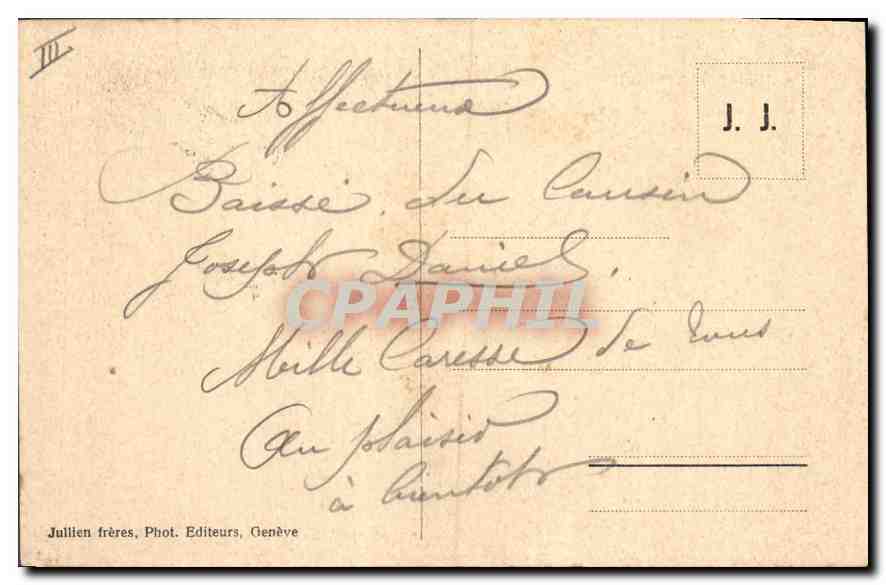 III
J. J.
Affectueux
Baissé du Cousin
Joseph Daniel,
CPAPHIL
Mille Caresse de tous
Au plaisir
à bientot
Jullien frères, Phot. Editeurs, Genève